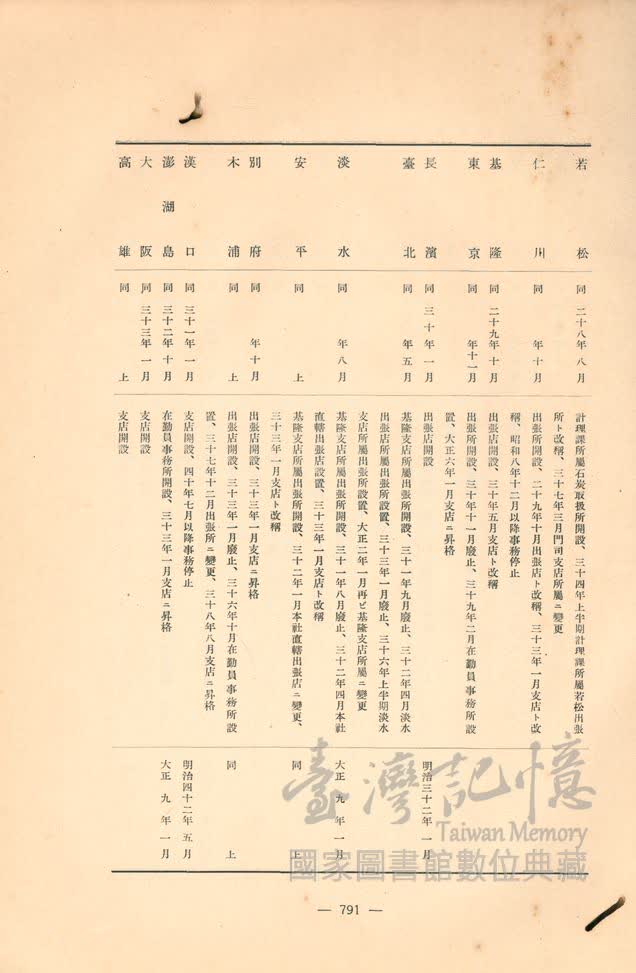 若松 同 二十八年八月 計理課所屬石炭取扱所開設、三十四年上半期計理課所屬若松出張
所ト改稱、三十七年三月門司支店所屬ニ變更
仁川 同 年十月 出張所開設、二十九年十月出張店ト改稱、三十三年一月支店ト改
稱、昭和八年十二月以降事務停止
基隆 同 二十九年十月 支店開設、三十年五月支店ト改稱
東京 同 年十一月 出張所開設、三十年十一月廢止、三十九年二月在勤員事務所設
置、大正六年一月支店ニ昇格
長濱 同 三十年一月 出張店開設 明治三十二年一月
臺北 同 年五月 基隆支店所屬出張所開設、三十一年九月廢止、三十二年四月淡水
出張店所屬出張所設置、三十三年一月廢止、三十六年上半期淡水
支店所屬出張所設置、大正二年一月再ビ基隆支店所屬ニ變更
淡水 同 年八月 基隆支店所屬出張所開設、三十一年八月廢止、三十二年四月本社
直轄出張店設置、三十三年一月支店ト改稱 大正九年一月
安平 同 上 基隆支店所屬出張所開設、三十二年一月本社直轄出張店ニ變更、
三十三年一月支店ト改稱 同 上
別府 同 年十月 出張店開設、三十三年一月支店ニ昇格
木浦 同 上 出張店開設、三十三年一月廢止、三十六年十月在勤員事務所設
置、三十七年十二月出張所ニ變更、三十八年八月支店ニ昇格 同 上
漢口 同 三十一年一月 支店開設、四十年七月以降事務停止 明治四十二年五月
澎湖島 同 三十二年十月 在勤員事務所開設、三十三年一月支店ニ昇格 大正九年一月
大阪 同 三十三年一月 支店開設
高雄 同 上 支店開設
臺灣記憶
Taiwan Memory
國家圖書館數位典藏
— 791 —